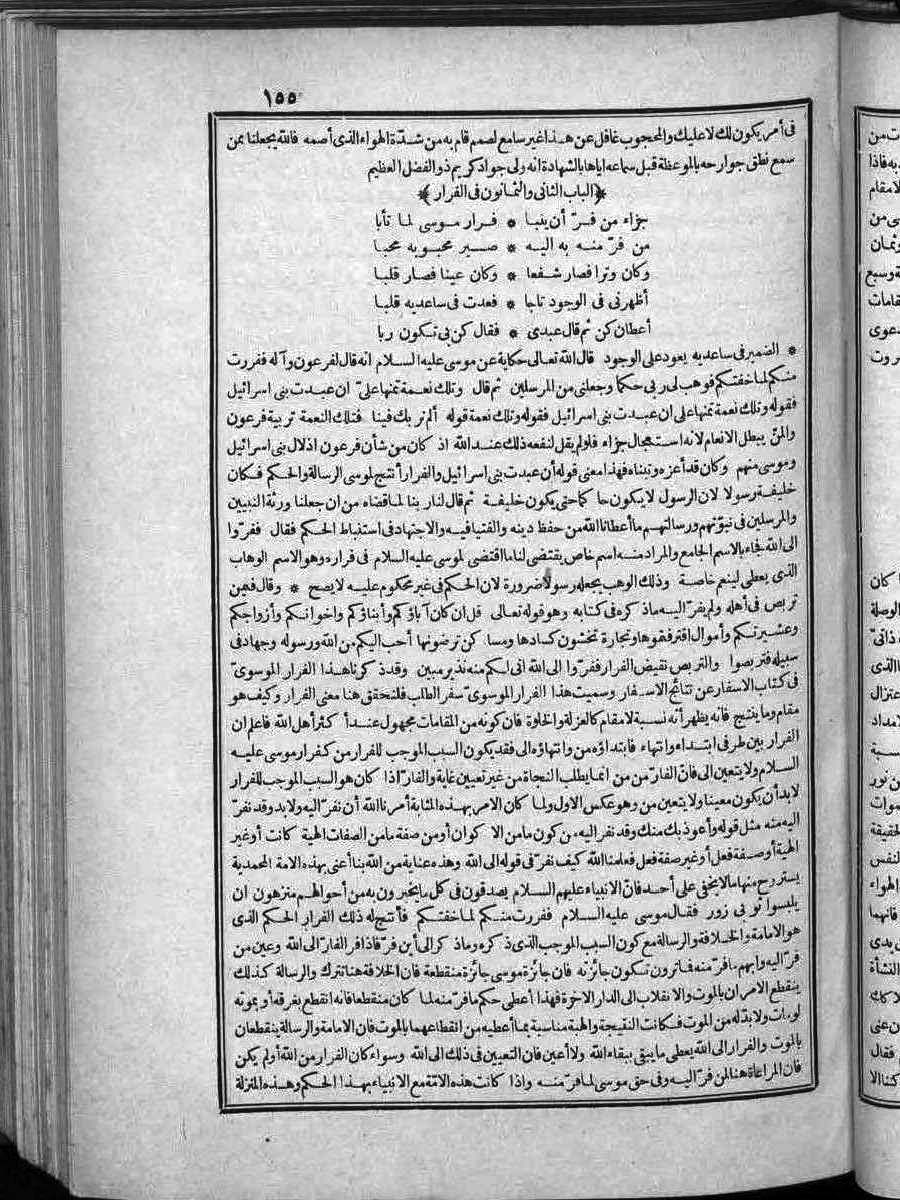 ١٥٥
فى أمر يكون لك لا عليك والمحجوب غافل عن هذا غير سامع لصمم قام به من شدة الهواء الذى أصمه فالله يجعلنا ممن
سمع نطق جوارحه بالموعظة قبل سماعه اياها بالشهادة انه ولى جواد كريم ذو الفضل العظيم
﴿الباب الثانى والثمانون فى الفرار﴾
جزاء من فرّ أن ينبا * فرار موسى لما تأبا
من فرّ منه به اليه * صير محبوبه محبا
وكان وترا فصار شفعا * وكان عينا فصار قلبا
أظهرنى فى الوجود تاجا * فعدت فى ساعديه قلبا
أعطان كن ثم قال عبدى * فقال كن بى تكون ربا
* الضمير فى ساعديه يعود على الوجود قال الله تعالى حكاية عن موسى عليه السلام انه قال لفرعون وآله ففررت
منكم لما خفتكم فوهب لى ربى حكما وجعلنى من المرسلين ثم قال وتلك نعمة تمنها علىّ ان عبدت بنى اسرائيل
فقوله وتلك نعمة تمنها على ان عبدت بنى اسرائيل فقوله وتلك نعمة قوله ألم نر بك فينا فتلك النعمة تربية فرعون
والمنّ يبطل الانعام لانه استعجال جزاء فلو لم يقل لنفعه ذلك عند الله اذ كان من شأن فرعون اذلال بنى اسرائيل
وموسى منهم وكان قد أعزه وتبناه فهذا معنى قوله أن عبدت بنى اسرائيل والفرار أنتج لموسى الرسالة والحكم فكان
خليفة رسولا لان الرسول لا يكون حاكما حتى يكون خليفة ثم قال لنا ربنا لما قضاه من ان جعلنا ورثة النبيين
والمرسلين فى نبوّتهم ورسالتهم ما أعطانا الله من حفظ دينه والفتيا فيه والاجتهاد فى استنباط الحكم فقال ففرّوا
الى الله فجاء بالاسم الجامع والمراد منه اسم خاص يقتضى لنا ما اقتضى لموسى عليه السلام فى فراره وهو الاسم الوهاب
الذى يعطى لينعم خاصة وذلك الوهب يجعله رسولا ضرورة لان الحكم فى غير محكوم عليه لا يصح * وقال فمن
تربص فى أهله ولم يفرّ اليه ماذكره فى كتابه وهو قوله تعالى قل ان كان آباؤكم وأبناؤكم واخوانكم وأزواجكم
وعشيرتكم وأموال اقترفتموها وتجارة تخشون كسادها ومساكن ترضونها أحب اليكم من الله ورسوله وجهاد فى
سبيله فتربصوا والتربص نقيض الفرار ففرّوا الى الله انى لكم منه نذير مبين وقد ذكرنا هذا الفرار الموسوىّ
فى كتاب الاسفار عن نتائج الاسفار وسميت هذا الفرار الموسوىّ سفر الطلب فلنحقق هنا معنى الفرار وكيف هو
مقام وما ينتج فانه يظهر أنه نسبة لا مقام كالعزلة والخلوة فان كونه من المقامات مجهول عند أكثر أهل الله فاعلم ان
الفرار بين طرفى ابتداء وانتهاء فابتداؤه من وانتهاؤه الى فقد يكون السبب الموجب للفرار من كفرار موسى عليه
السلام ولا يتعين الى فانّ الفارّ من من انما يطلب النجاة من غير تعيين غاية والفارّ اذا كان هو السبب الموجب للفرار
لابد أن يكون معينا ولا يتعين من وهو عكس الاول ولما كان الامر بهذه المثابة أمرنا الله أن نفرّ اليه ولابد وقد نفرّ
اليه منه مثل قوله وأعوذ بك منك وقد نفر اليه من كون ما من الاكوان أو من صفة ما من الصفات الهية كانت أو غير
الهية أو صفة فعل أو غير صفة فعل فعلمنا الله كيف نفرّ فى قوله الى الله وهذه عناية من الله بنا أعنى بهذه الامة المحمدية
يستروح منها ما لا يخفى على أحد فانّ الانبياء عليهم السلام يصدقون فى كل ما يخبرون به من أحوالهم منزهون ان
يلبسوا ثوبى زور فقال موسى عليه السلام ففررت منكم لما خفتكم فأنتج له ذلك الفرار الحكم الذى
هو الامامة والخلافة والرسالة مع كون السبب الموجب الذى ذكره وما ذكر الى أين فرّ فاذا فر الفارّ الى الله وعين من
فرّ اليه وابهم ما فرّ منه فما ترون تكون جائزته فان جائزة موسى جائزة منقطعة فان الخلافة هنا تترك والرسالة كذلك
ينقطع الامر ان بالموت والانقلاب الى الدار الآخرة فهذا أعطى حكم ما فرّ منه لما كان منقطعا فانه انقطع بغرقه أو بموته
لو مات ولابدّ له من الموت فكانت النتيجة والهبة مناسبة بما أعطيه من انقطاعهما بالموت فان الامامة والرسالة ينقطعان
بالموت والفرار الى الله يعطى ما يبقى ببقاء الله ولا أعين فان التعيين فى ذلك الى الله وسواء كان الفرار من الله أو لم يكن
فان المراعاة هنا لمن فرّ اليه وفى حق موسى لما فرّ منه واذا كانت هذه الامّة مع الانبياء بهذا الحكم وهذه المنزلة